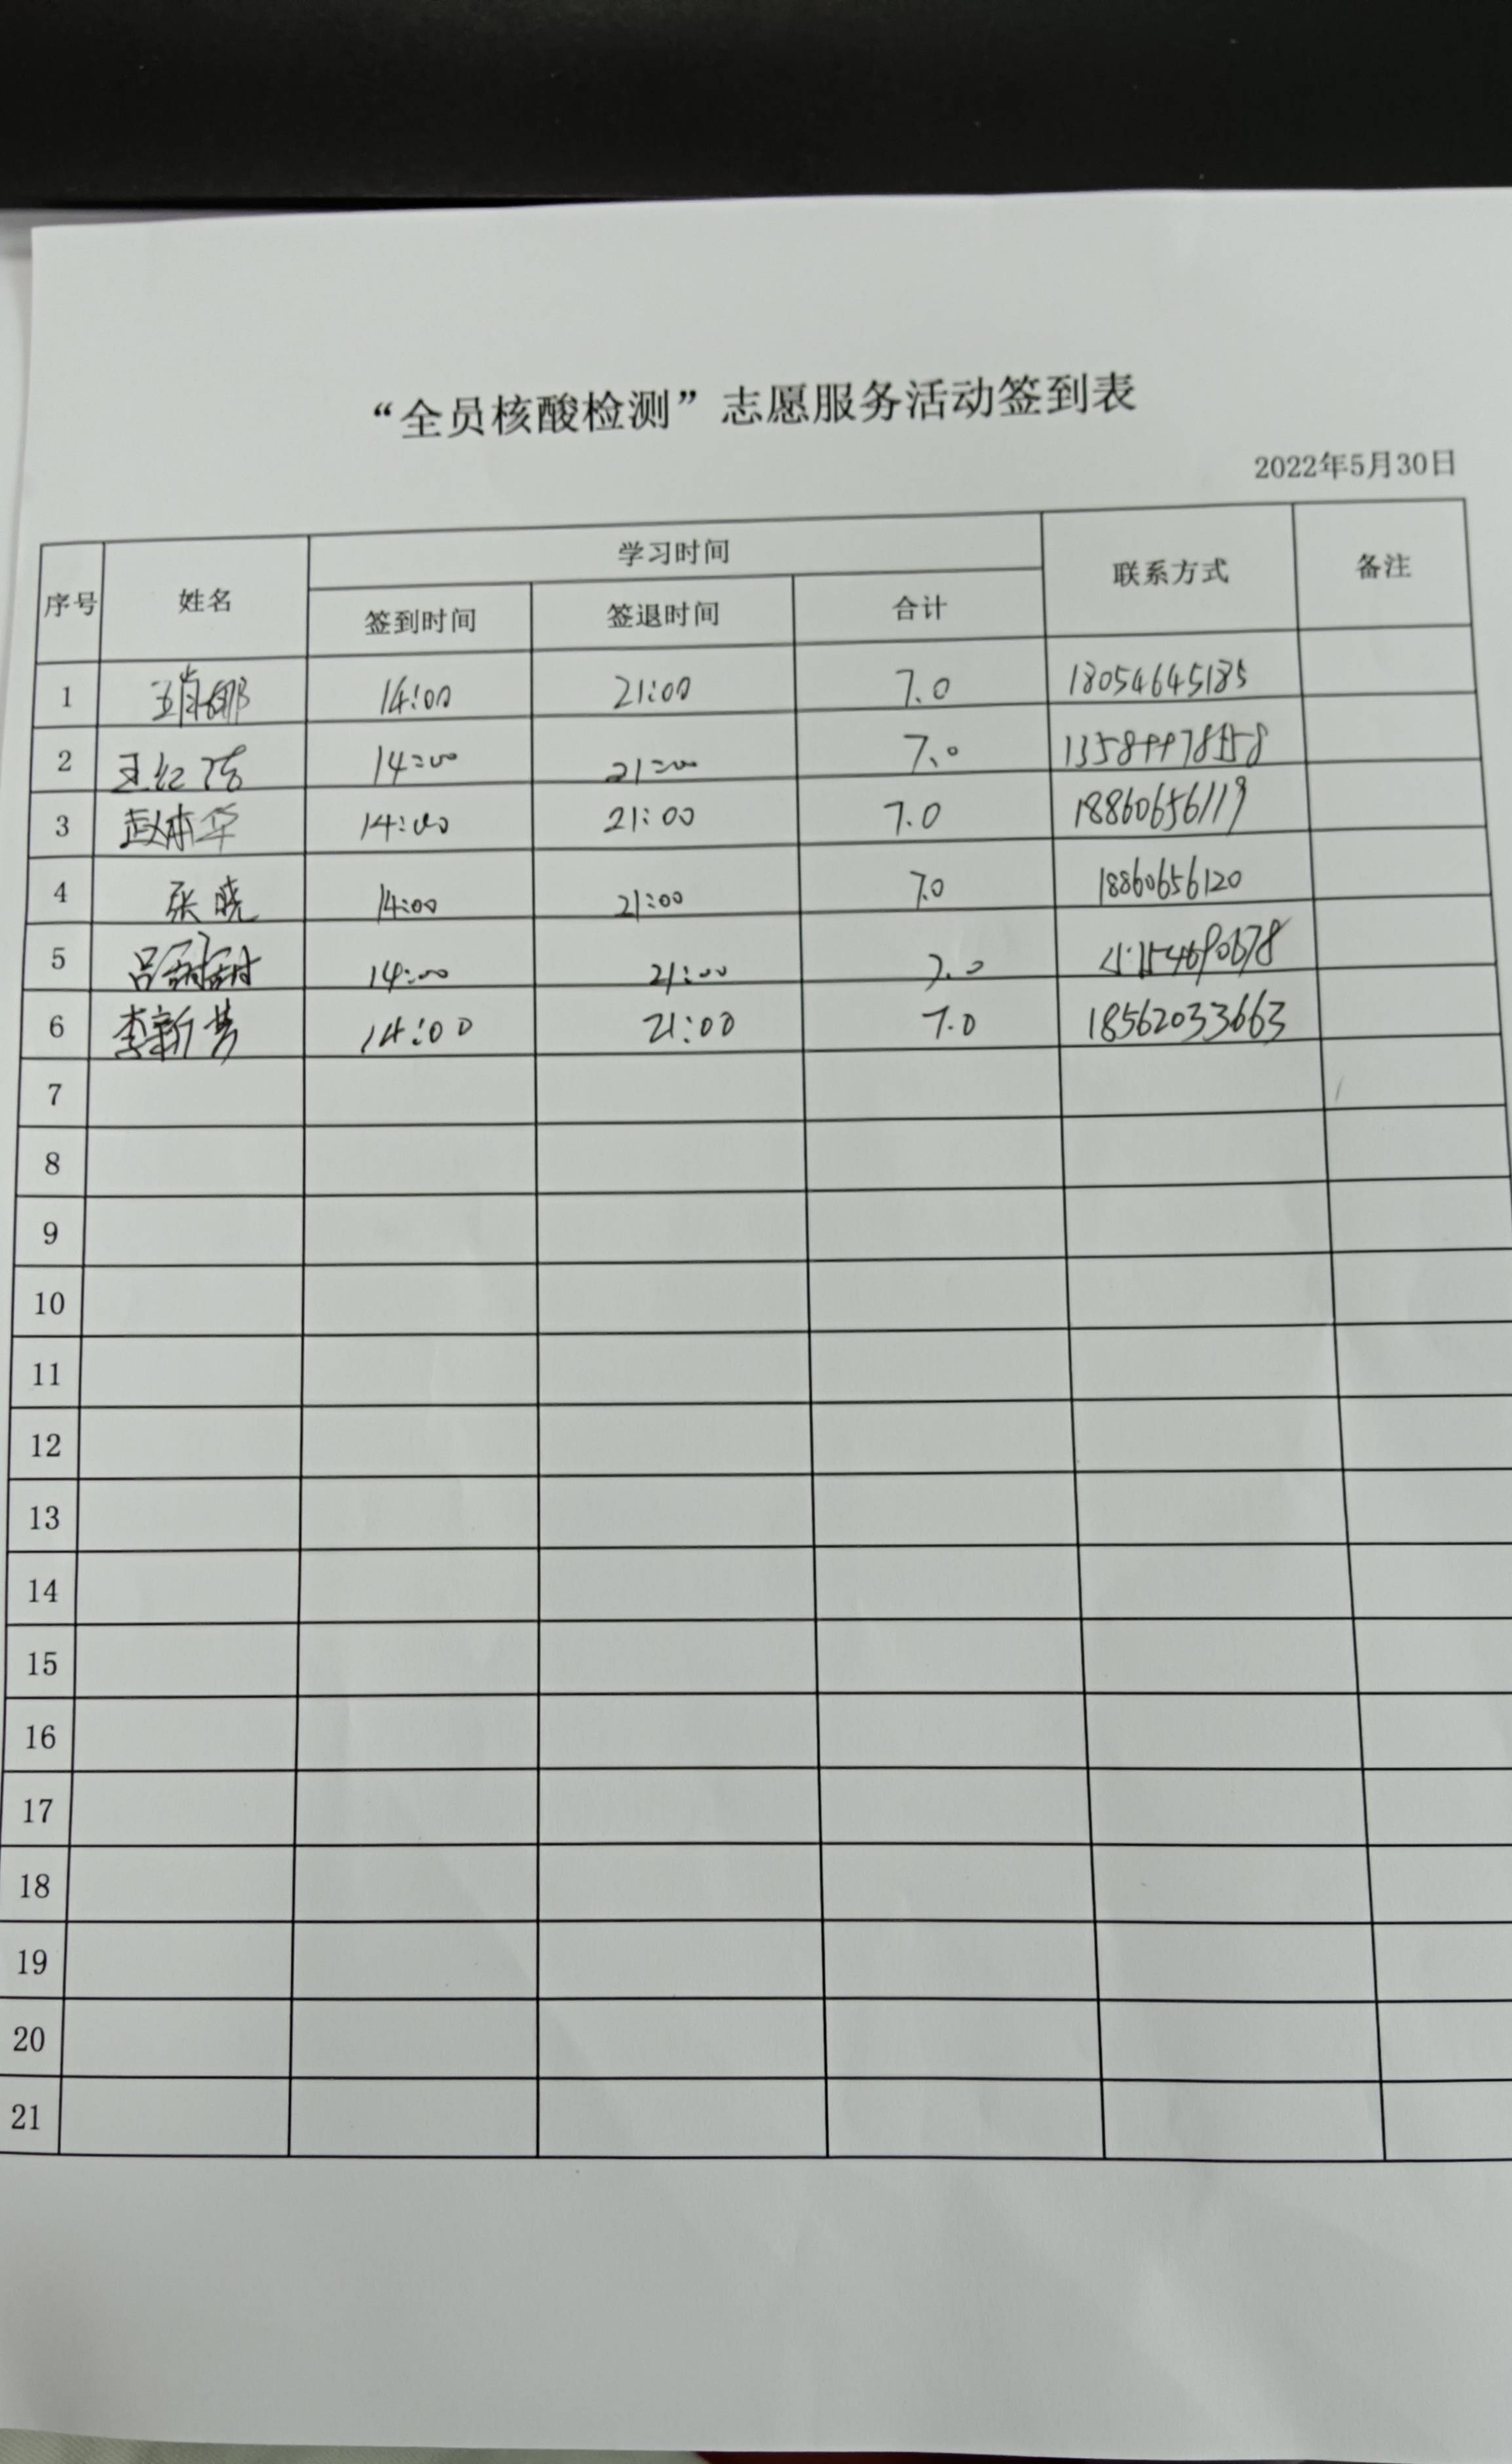 “全员核酸检测”志愿服务活动签到表
2022年5月30日
序号 姓名 学习时间 联系方式 备注
签到时间 签退时间 合计
1 14:00 21:00 7.0 18054645185
2 王红 14:00 21:00 7.0
3 赵本华 14:00 21:00 7.0 18860656119
4 张晓 14:00 21:00 7.0 18860656120
5 吕甜甜 14:00 21:00 7.0
6 李新梦 14:00 21:00 7.0 18562033663
7
8
9
10
11
12
13
14
15
16
17
18
19
20
21